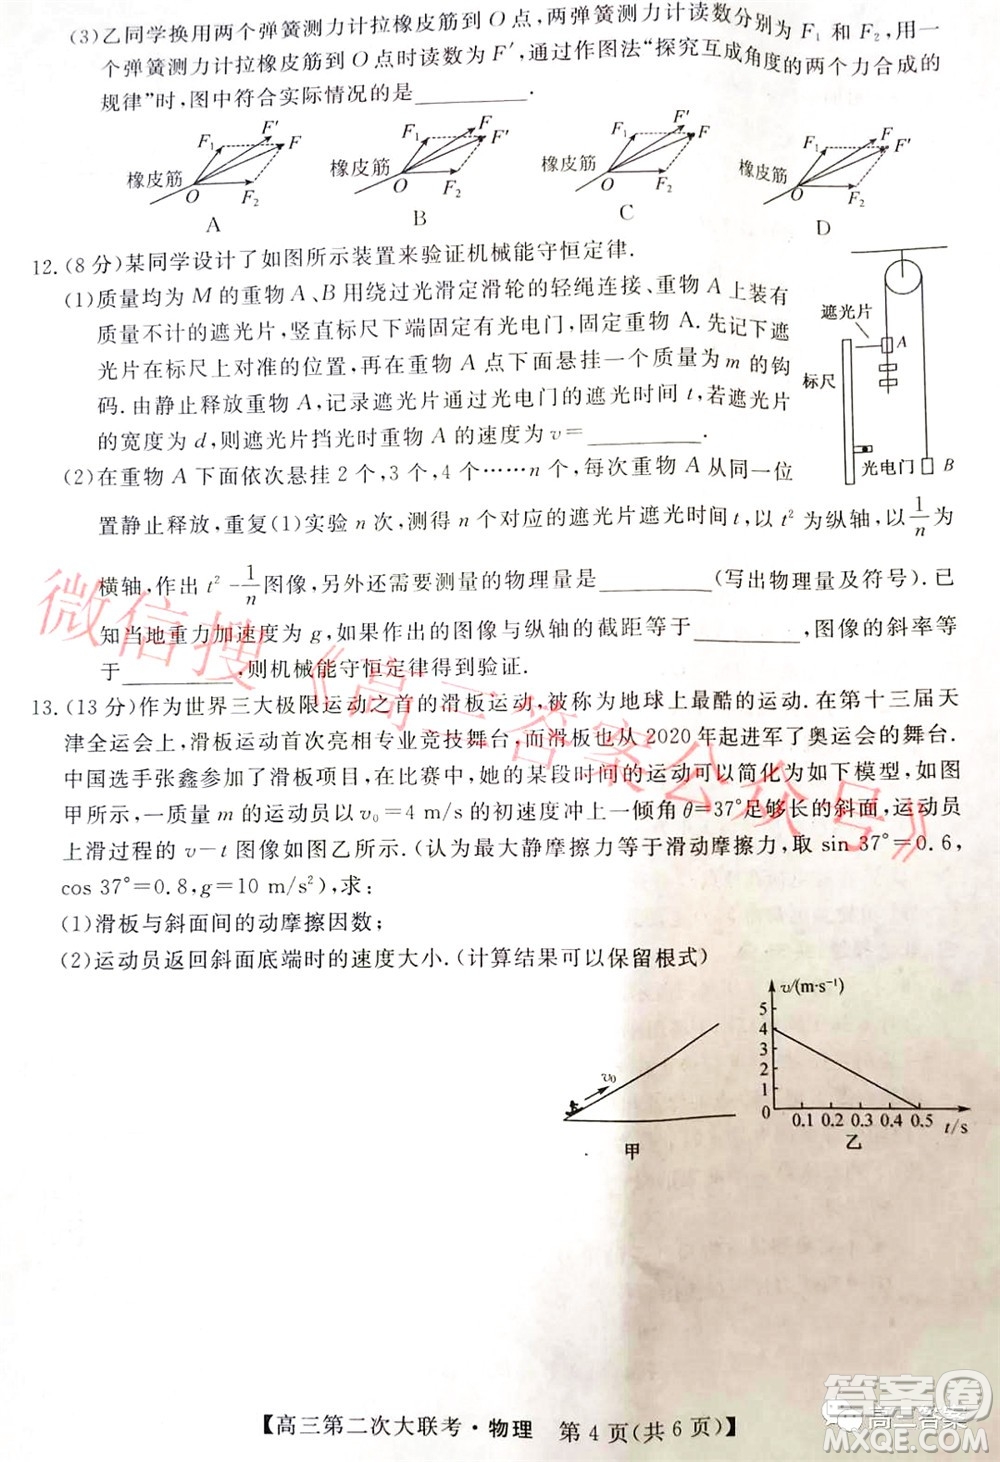 (3)乙同学换用两个弹簧测力计拉橡皮筋到 O 点,两弹簧测力计读数分别为 F₁ 和 F₂,用一
个弹簧测力计拉橡皮筋到 O 点时读数为 F′,通过作图法“探究互成角度的两个力合成的
规律”时,图中符合实际情况的是________.
F₁ F′ F 橡皮筋 O F₂ A
F₁ F F′ 橡皮筋 O F₂ B
F₁ F′ F 橡皮筋 O F₂ C
F₁ F F′ 橡皮筋 O F₂ D
12.(8 分)某同学设计了如图所示装置来验证机械能守恒定律.
(1)质量均为 M 的重物 A、B 用绕过光滑定滑轮的轻绳连接、重物 A 上装有
质量不计的遮光片,竖直标尺下端固定有光电门,固定重物 A.先记下遮
光片在标尺上对准的位置,再在重物 A 点下面悬挂一个质量为 m 的钩
码.由静止释放重物 A,记录遮光片通过光电门的遮光时间 t,若遮光片
的宽度为 d,则遮光片挡光时重物 A 的速度为 v=________.
遮光片
A
标尺
光电门
B
(2)在重物 A 下面依次悬挂 2 个,3 个,4 个……n 个,每次重物 A 从同一位
置静止释放,重复(1)实验 n 次,测得 n 个对应的遮光片遮光时间 t,以 t² 为纵轴,以 1/n 为
横轴,作出 t² -1/n图像,另外还需要测量的物理量是________(写出物理量及符号).已
知当地重力加速度为 g,如果作出的图像与纵轴的截距等于________,图像的斜率等
于________,则机械能守恒定律得到验证.
13.(13 分)作为世界三大极限运动之首的滑板运动,被称为地球上最酷的运动.在第十三届天
津全运会上,滑板运动首次亮相专业竞技舞台,而滑板也从 2020 年起进军了奥运会的舞台.
中国选手张鑫参加了滑板项目,在比赛中,她的某段时间的运动可以简化为如下模型,如图
甲所示,一质量 m 的运动员以 v₀=4 m/s 的初速度冲上一倾角 θ=37°足够长的斜面,运动员
上滑过程的 v-t 图像如图乙所示.(认为最大静摩擦力等于滑动摩擦力,取 sin 37°=0.6,
cos 37°=0.8,g=10 m/s²),求:
(1)滑板与斜面间的动摩擦因数;
(2)运动员返回斜面底端时的速度大小.(计算结果可以保留根式)
v₀
甲
v/(m·s⁻¹)
5
4
3
2
1
0
0.1 0.2 0.3 0.4 0.5 t/s
乙
微信搜《高三答案公众号》
【高三第二次大联考·物理 第 4 页(共 6 页)】
答案圈
高三答案